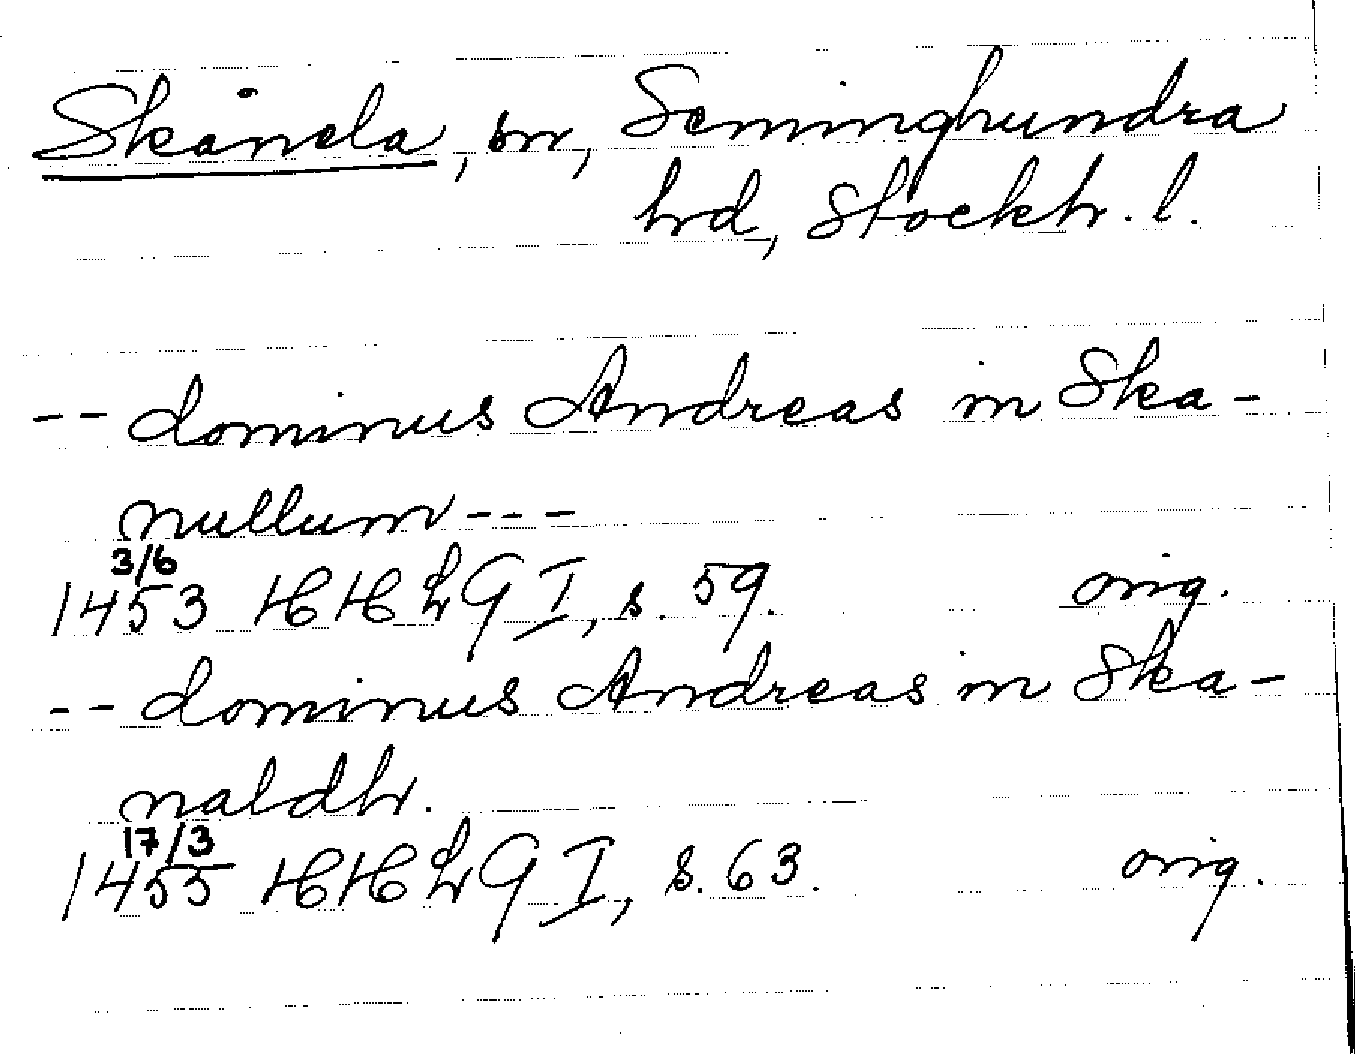 Skånela, sn, Seminghundra
hrd, Stockh. l.
-- dominus Andreas in Ska-
nullum ---
3/6
1453 HHLG I, s. 59. orig.
-- dominus Andreas in Ska-
naldh.
17/3
1455 HHLG I, s. 63. orig.